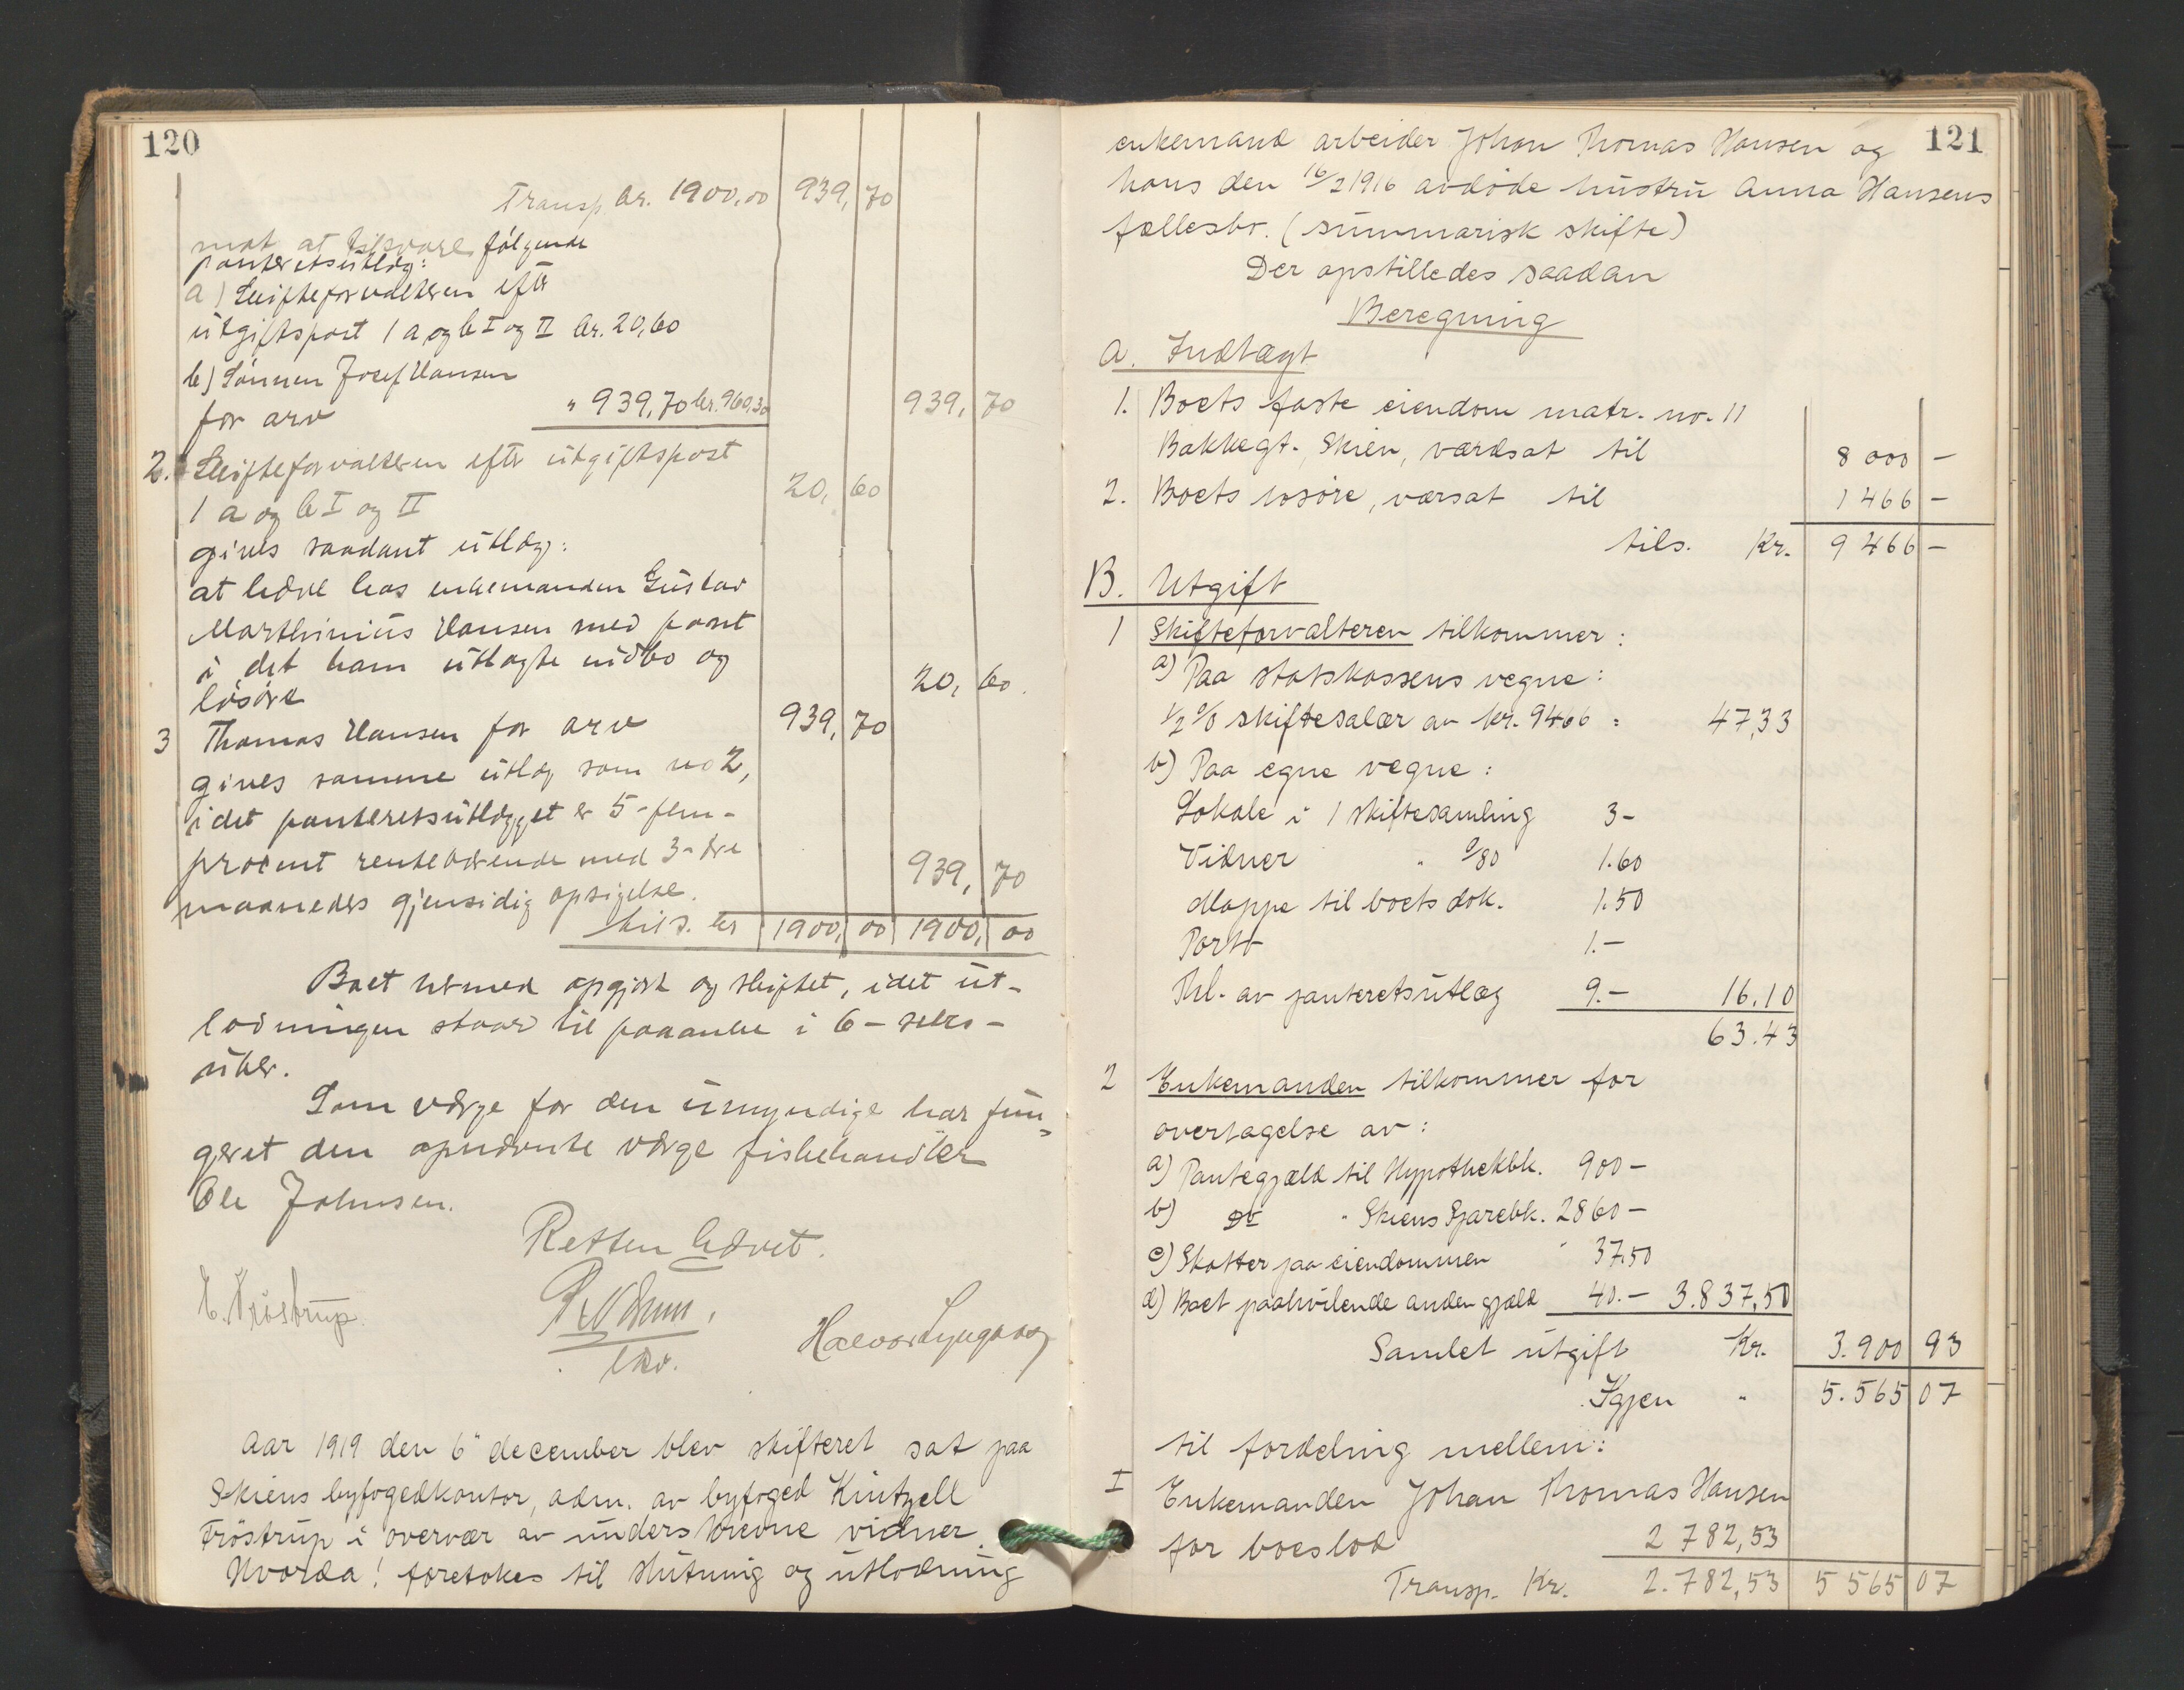 120
Transp. kr. 1900,00 939,70
mot at tilsvare følgende
panteretsutlæg:
a) Skifteforvalteren efter
utgiftspost 1 a og b I og II kr. 20,60
b) Sønnen Josef Hansen
for arv " 939,70 kr. 960,30 939,70
2. Skifteforvalteren efter utgiftspost
1 a og b I og II 20,60
gives saadant utlæg:
at hæve hos enkemanden Gustav
Marthinius Hansen med pant
i det ham utlagte indbo og
løsøre 20,60.
3 Thomas Hansen for arv 939,70
gives samme utlæg som no 2,
idet panteretsutlægget er 5-fem-
procent rentebærende med 3-tre
maaneders gjensidig opsigelse. 939,70
tils. kr 1900,00 1900,00
Boet hermed opgjort og skiftet, idet ut-
lodningen staar til paaanke i 6-seks-
uker.
Som værge for den umyndige har fun-
geret den opnævnte værge fiskehandler
Ole Johnsen.
Retten hævet.
K. Frøstrup.
Halvor Lyngaas
Aar 1919 den 6" december blev skifteret sat paa
Skiens byfogedkontor, adm. av byfoged Kintzell
Frøstrup i overvær av underskrevne vidner.
Hvorda! foretokes til slutning og utlodning
121
enkemand arbeider Johan Thomas Hansen og
hans den 16/2 1916 avdøde hustru Anna Hansens
fællesbo. (summarisk skifte)
Der opstilledes saadan
Beregning
A. Indtægt
1. Boets faste eiendom matr. no. 11
Bakkegt. Skien, værdsat til 8000 -
2. Boets løsøre, værsat til 1466 -
tils. Kr. 9466 -
B. Utgift
1 Skifteforvalteren tilkommer:
a) Paa statskassens vegne:
1/2 % skiftesalær av kr. 9466 = 47,33
b) Paa egne vegne:
Lokale i 1 skiftesamling 3-
Vidner " 0/80 1.60
Mappe til boets dok. 1.50
Porto 1.-
Thl. av panteretsutlæg 9.- 16.10
63.43
2 Enkemanden tilkommer for
overtagelse av:
a) Pantegjæld til Hypothekbk. 900 -
b) Do " Skiens Sparebk. 2860 -
c) Skatter paa eiendommen " 37.50
d) Boet paahvilende anden gjæld 40.- 3.837,50
Samlet utgift Kr. 3.900 93
Igjen " 5.565 07
til fordeling mellem:
I Enkemanden Johan Thomas Hansen
for boeslod 2 782,53
Transp. Kr. 2.782,53 5 565 07